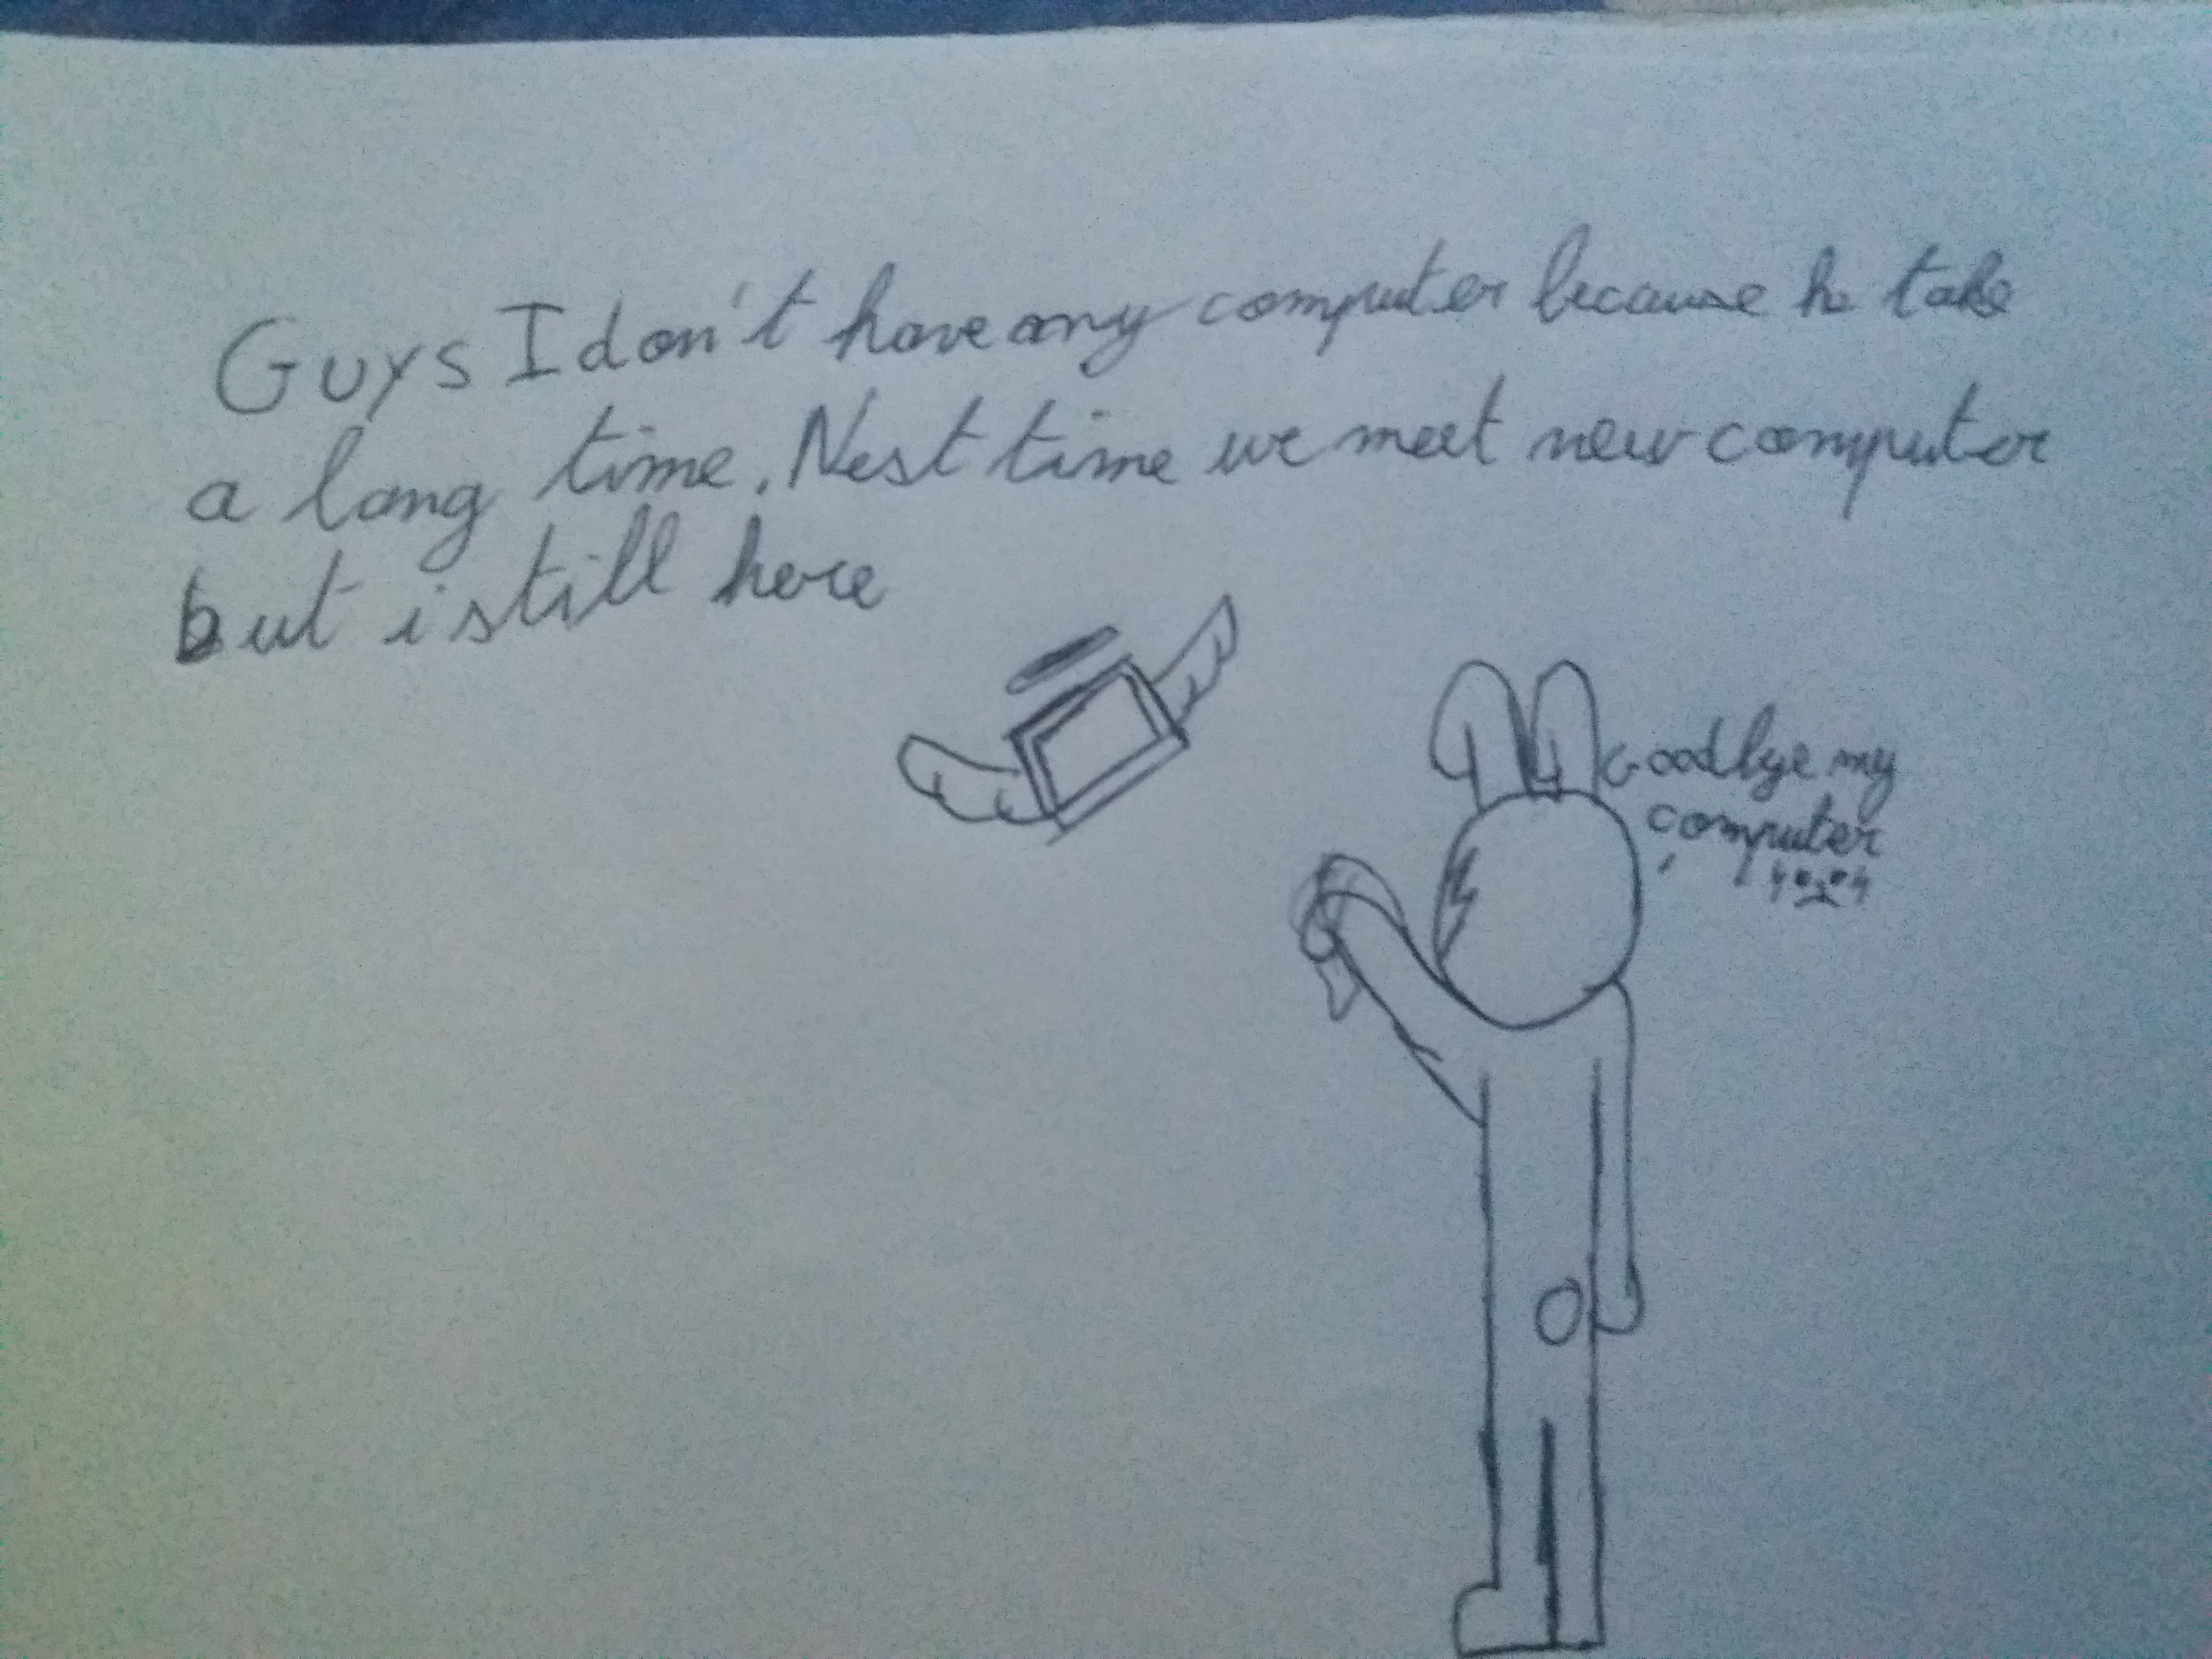 Guys I don't have any computer because he take
a long time. Nest time we meet new computer
but i still here
Goodbye my
computer